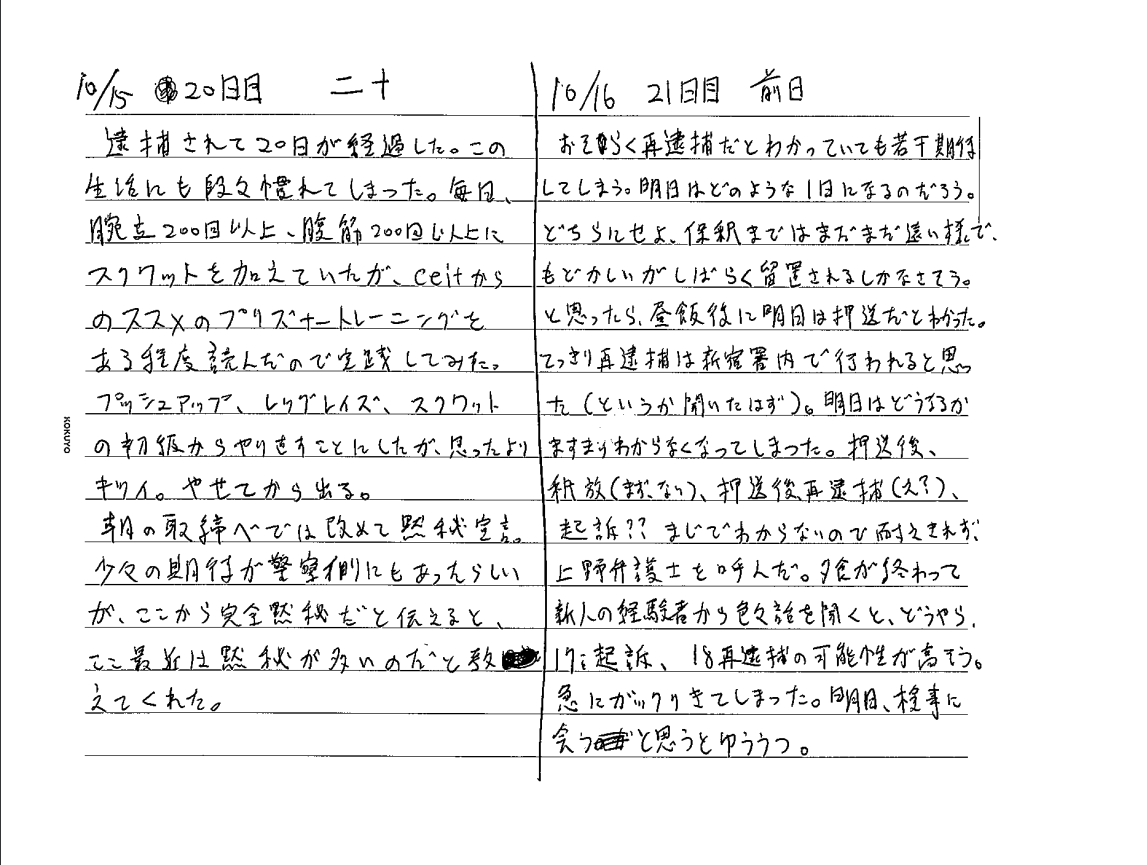 10/15 20日目 二十
逮捕されて20日が経過した。この
生活にも段々慣れてしまった。毎日、
腕立200回以上、腹筋200回以上に
スクワットを加えていたが、ceitから
のススメのプリズナートレーニングを
ある程度読んだので実践してみた。
プッシュアップ、レッグレイズ、スクワット
の初級からやり直すことにしたが、思ったより
キツイ。やせてから出る。
朝の取締べでは改めて黙秘宣言。
少々の期待が警察側にもあったらしい
が、ここから完全黙秘だと伝えると、
ここ最近は黙秘が多いのだと教
えてくれた。
KOKUYO
10/16 21日目 前日
おそらく再逮捕だとわかっていても若干期待
してしまう。明日はどのような1日になるのだろう。
どちらにせよ、保釈まではまだまだ遠い様で、
もどかしいがしばらく留置されるしかなさそう。
と思ったら、昼飯後に明日は押送だとわかった。
てっきり再逮捕は新宿署内で行われると思っ
た(というか聞いたはず)。明日はどうなるか
ますますわからなくなってしまった。押送後、
釈放(まずない)、押送後再逮捕(え?)、
起訴?? まじでわからないので耐えきれず、
上野弁護士を呼んだ。夕食が終わって
新人の経験者から色々話を聞くと、どうやら、
17に起訴、18再逮捕の可能性が高そう。
急にガックリきてしまった。明日、検事に
会うと思うとゆううつ。